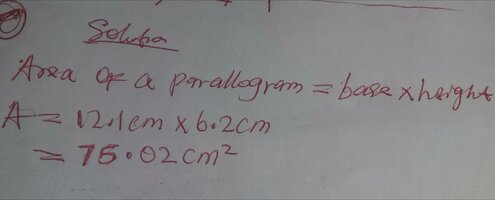 Solution
Area of a parallogram = base x height
A = 12.1cm x 6.2cm
= 75.02cm²